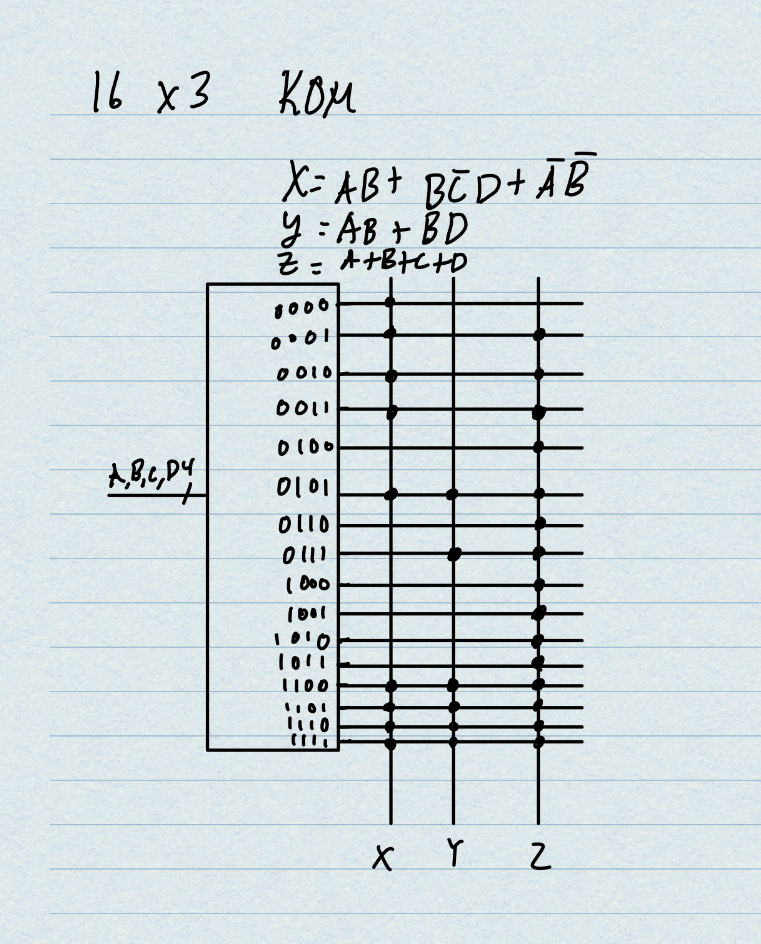 16 x3 ROM
X= AB+ BC̅D+ A̅B̅
Y = AB + BD
Z = A+B+C+D
0000
0001
0010
0011
0100
0101
A,B,C,D 4
0110
0111
1000
1001
1010
1011
1100
1101
1110
1111
X Y Z